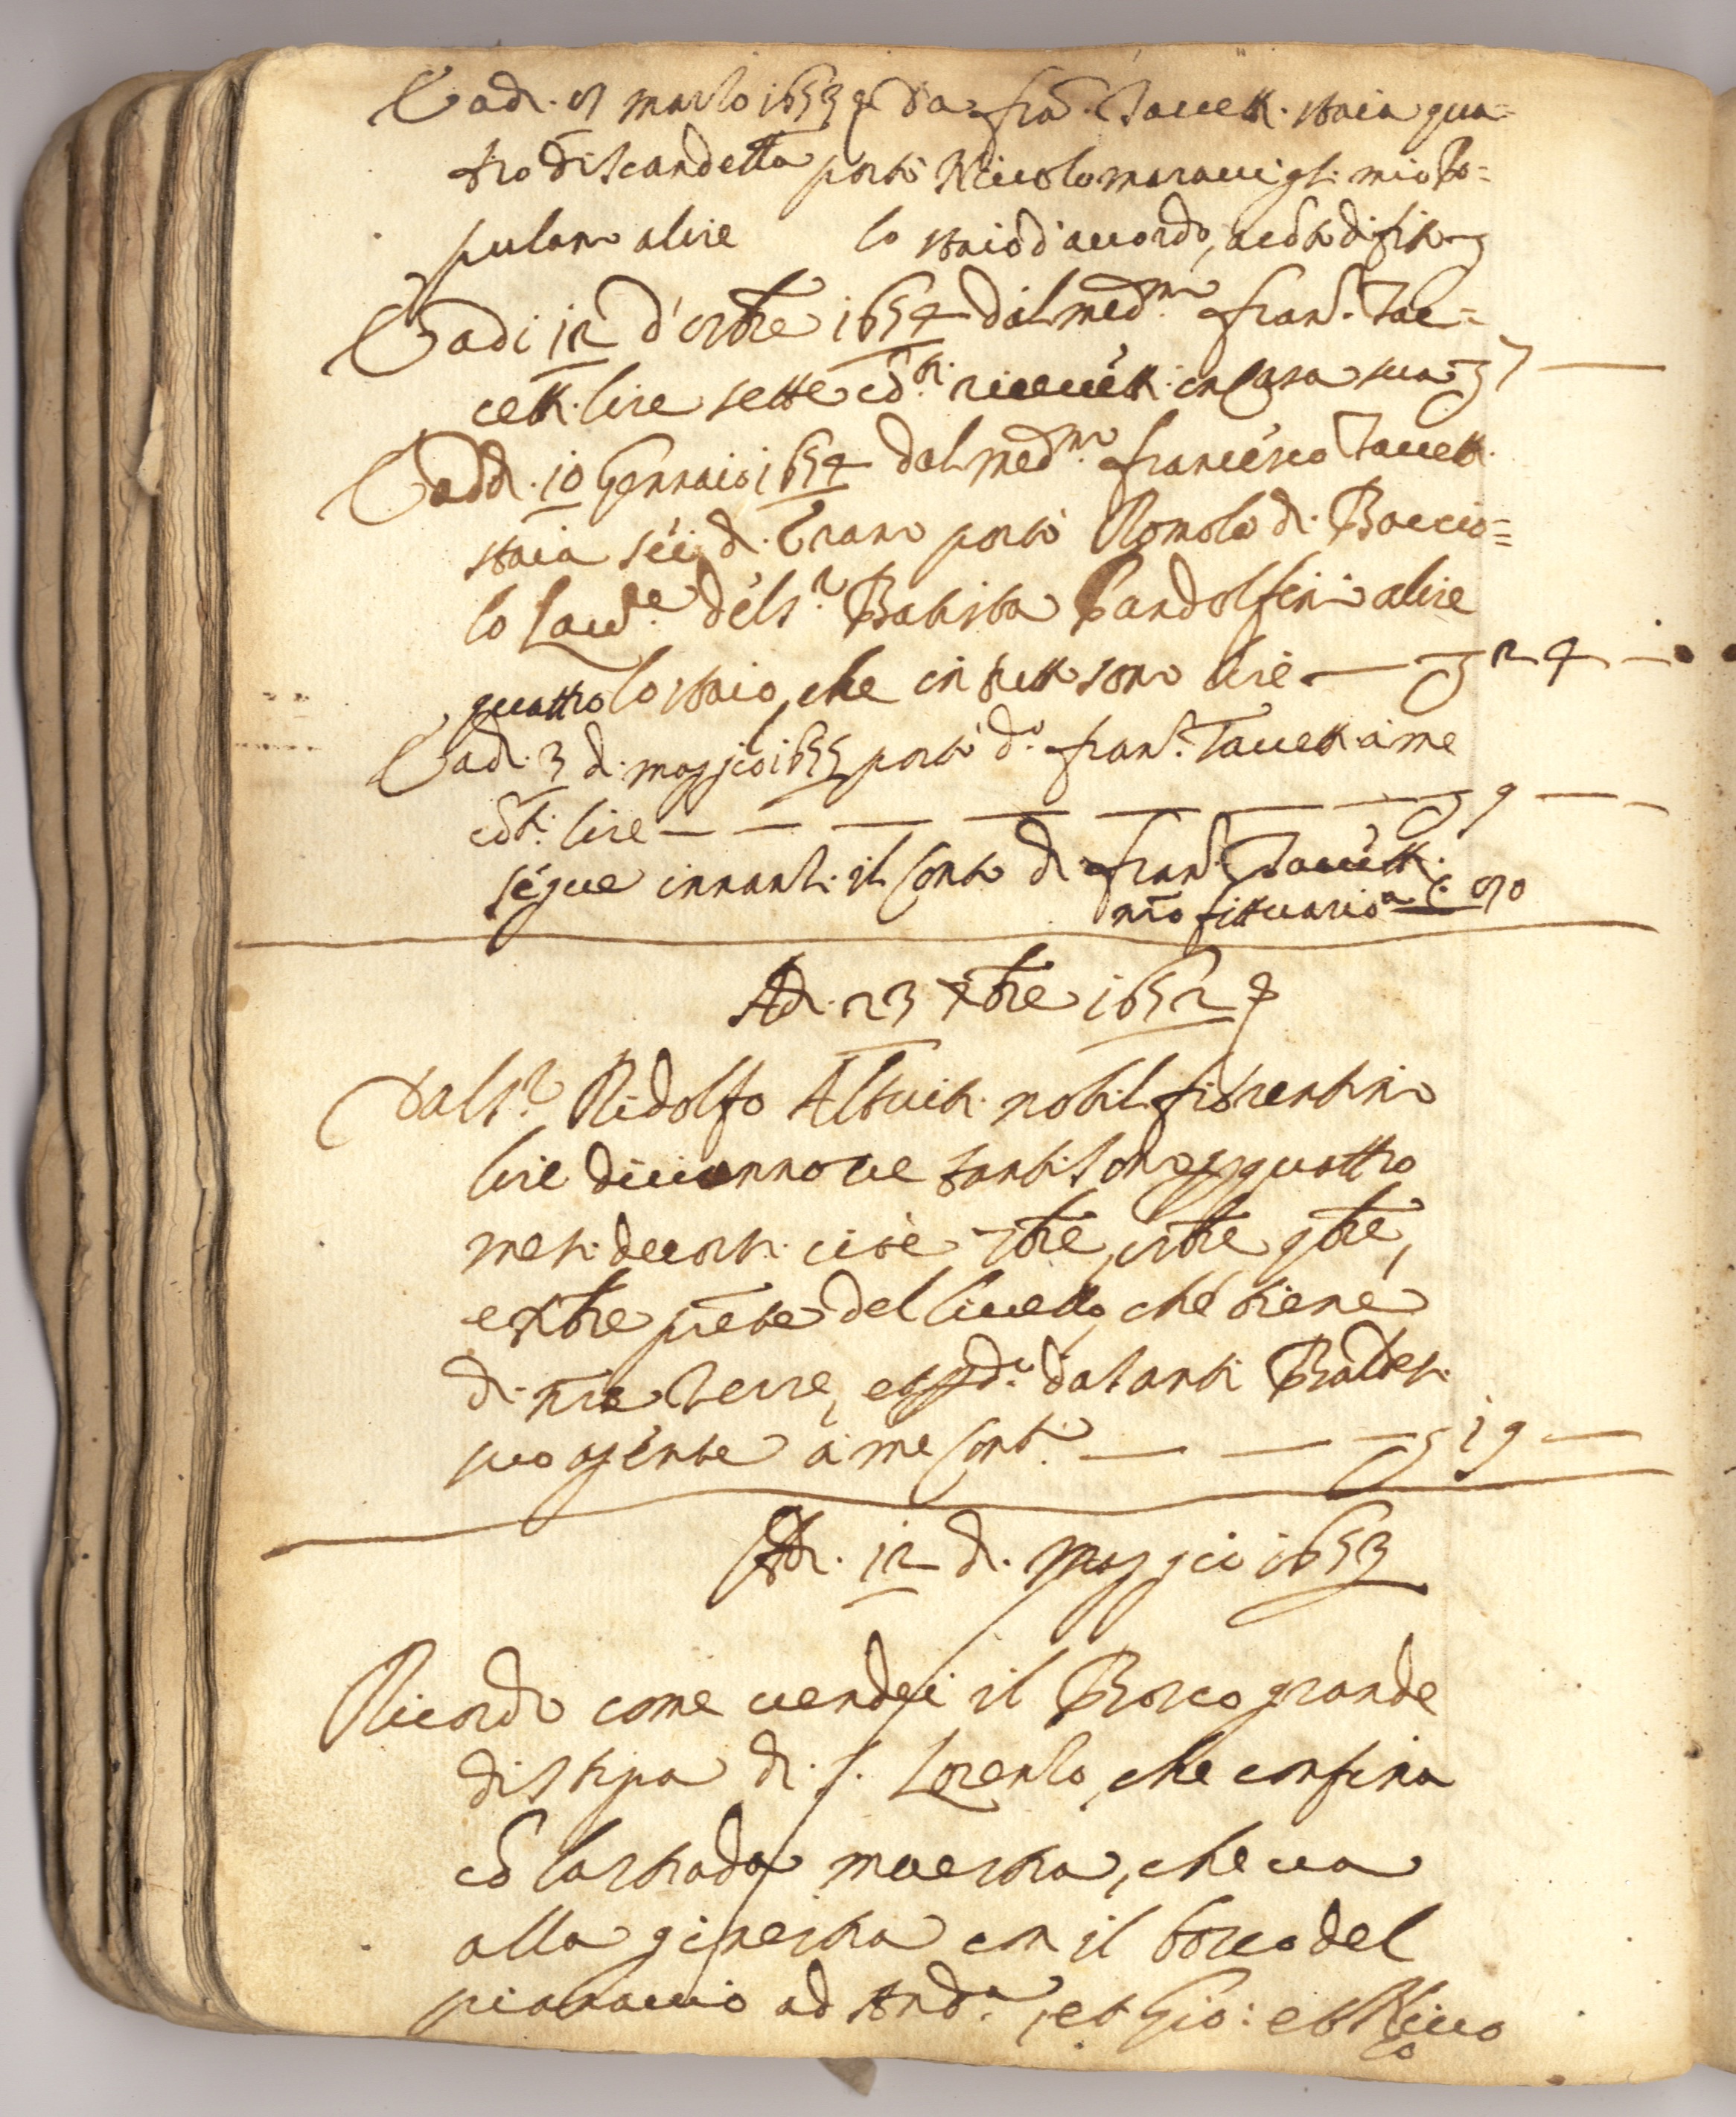 E adi. 8 marzo 1653 da fran.º Taccett. staia qua=
tro di scandella portò Niccolo maravigl: mio po=
pulano a lire lo staio d'accordo, a cōto di fitto
E adi 12 d'8bre 1654 dal med.mo fran.º Tac=
cett. lire sette cōti. ricevètti in Casa sua 7 —
E add. 10 Gennaio 1654 dal med.mo francésco Taccett.
staia séi di Grano portò Romolo di Boccio=
lo Lavd.e dél S.r Batista Pandolfini a lire
quattro lo staio, che in tutto sono lire — 24 —
E adi. 3 di maggio 1655 portò d.o fran.º Taccett. à me
cōti: lire — — — — — — 9 — —
ségue innanzi il Conto di fran.º Taccétt.
nr̄o fittuario a C: 80
Adi. 23 Xbre 1652
Dal S.r Ridolfo Altovit. nobil fiorentino
lire diciannove tanti sono p quattro
mesi decorsi cioè 7bre, 8bre, 9bre,
e Xbre pn̄te del livello, che tiene
di nr̄e terre, et p d.o da Santi Baldesi
suo agénte à me Cont.i — — — 19 —
Adi. 12 di maggio 1653
Ricordo come vendei il Bosco grande
di stipa di S. Lorenzo, che confina
cō la strada maestra, che va
alla ginestra con il bosco del
pianaccio ad And.a, et Gio: et Nicco